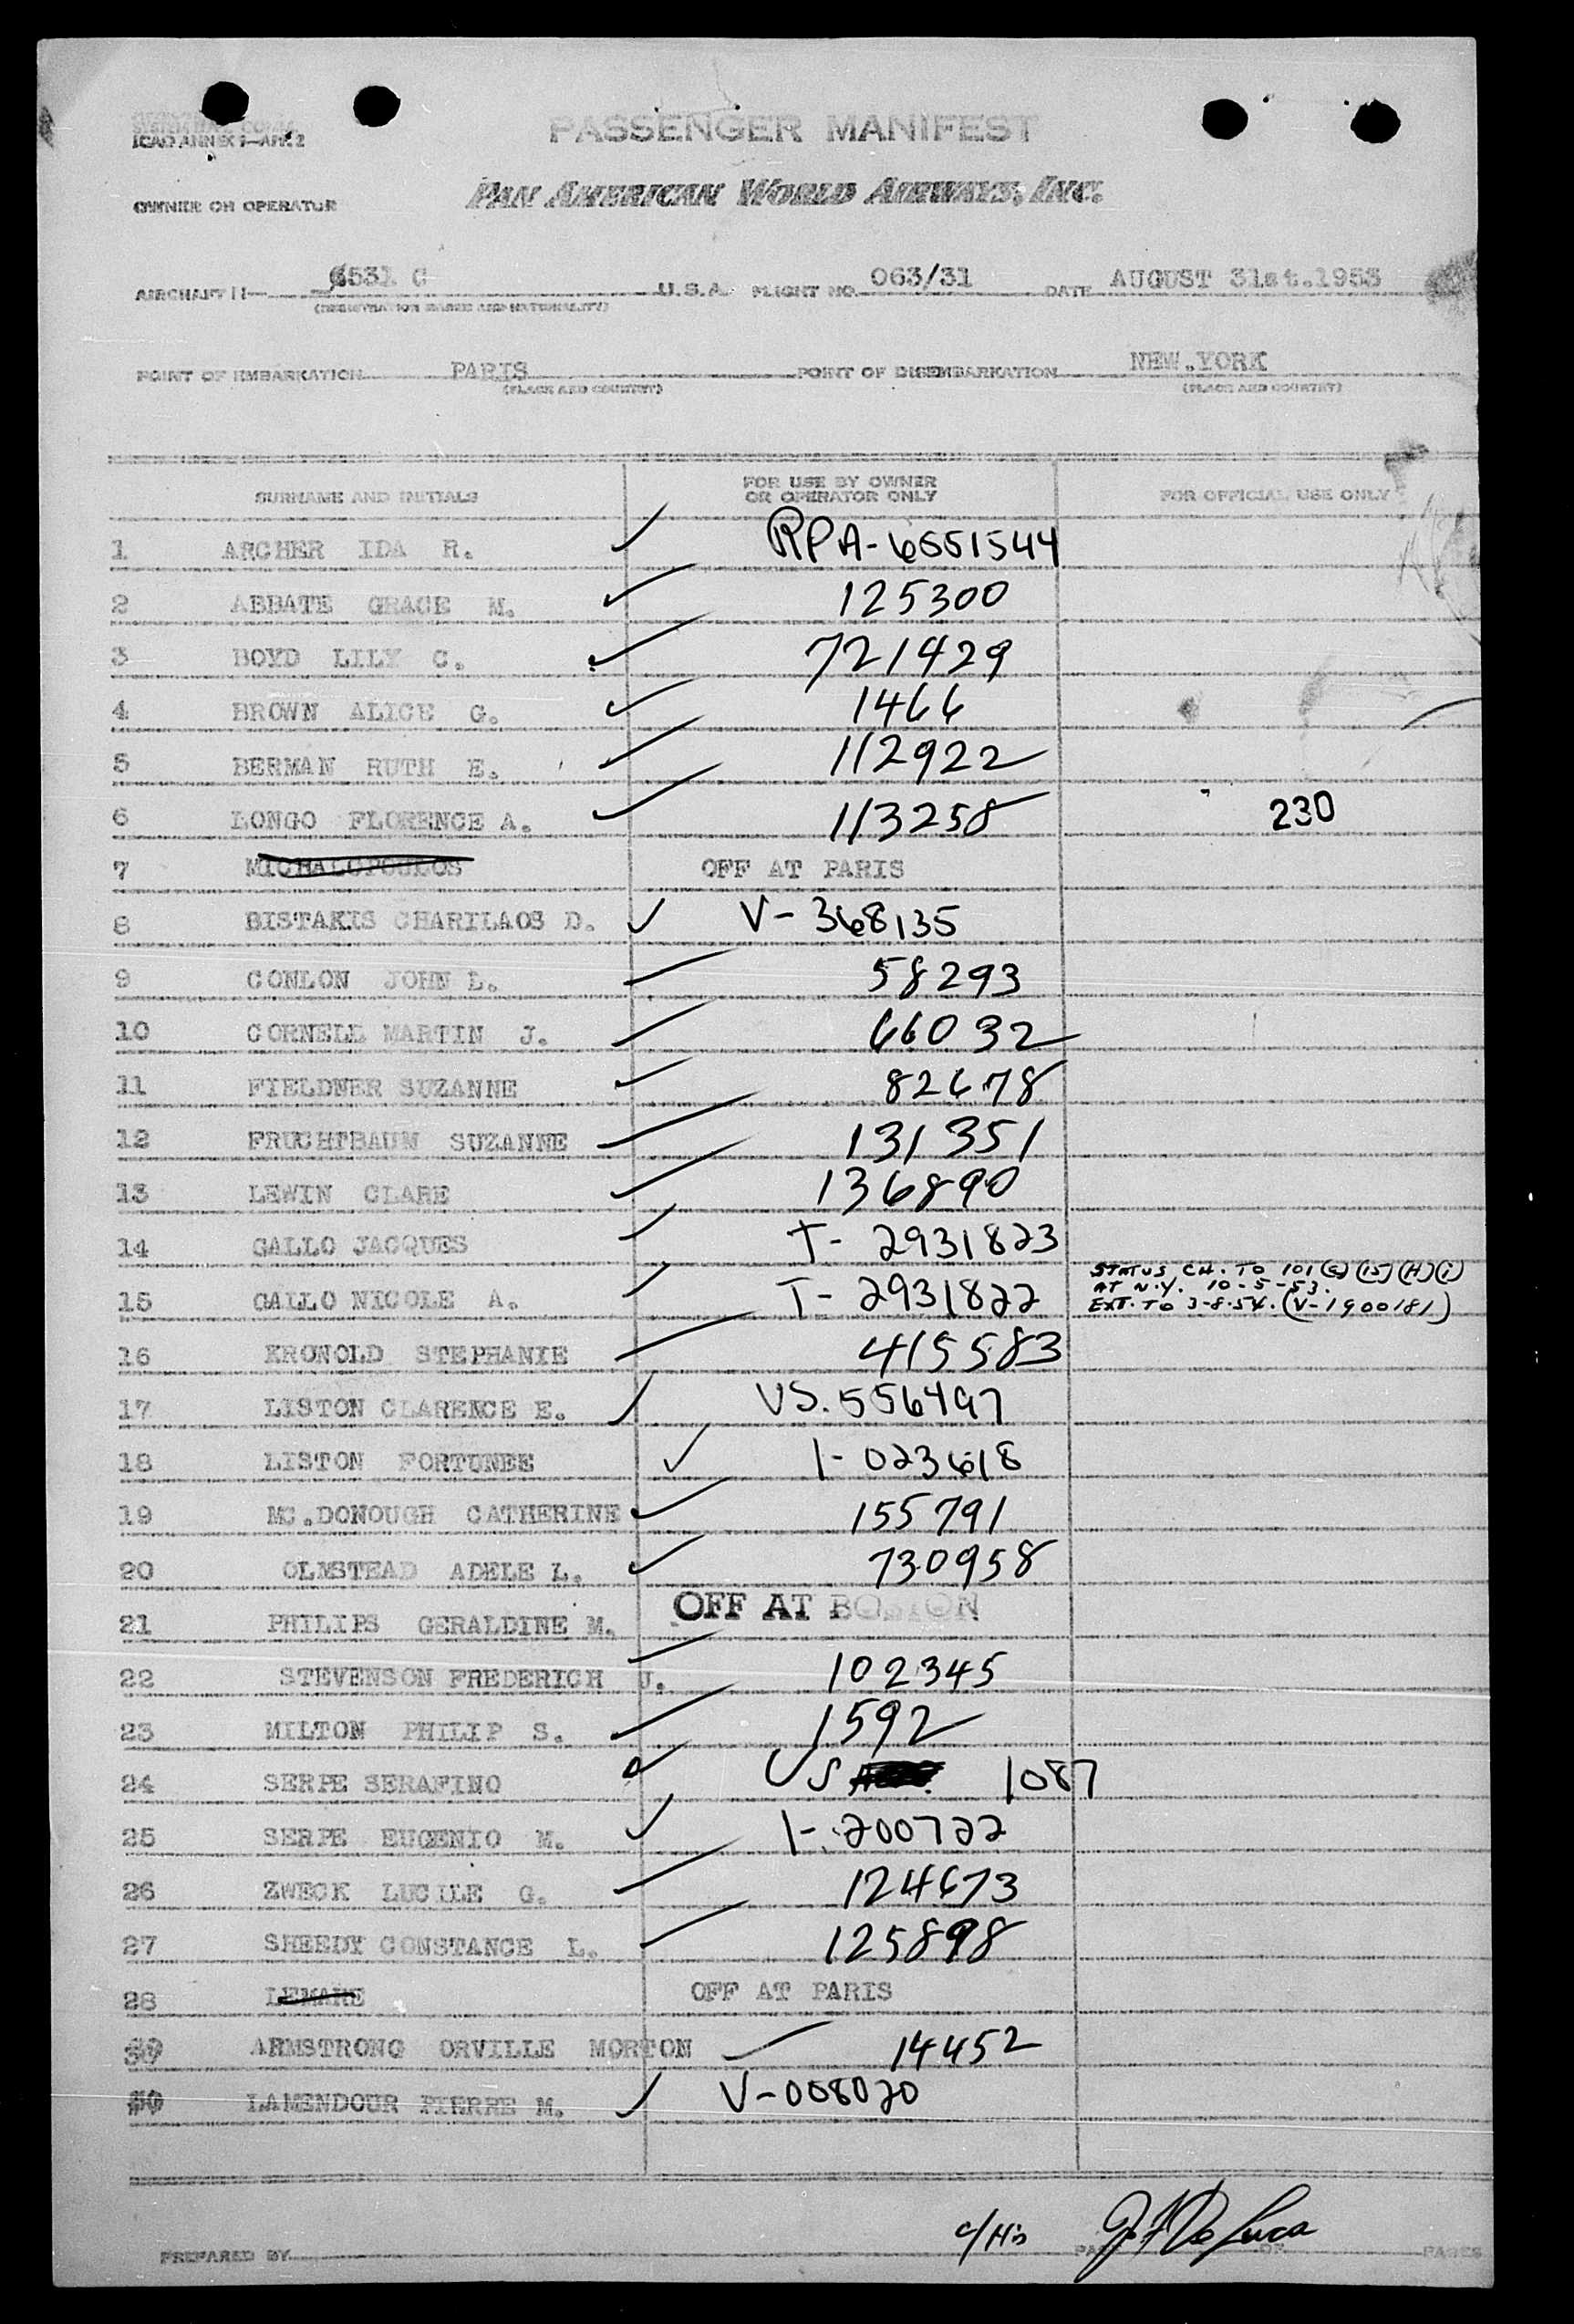 ICAO ANNEX 9—APP. 2
PASSENGER MANIFEST
OWNER OR OPERATOR
PAN AMERICAN WORLD AIRWAYS, INC.
AIRCRAFT 6531 C U.S.A. FLIGHT NO. 063/31 DATE AUGUST 31st.1953
(REGISTRATION MARKS AND NATIONALITY)
POINT OF EMBARKATION PARIS POINT OF DISEMBARKATION NEW.YORK
(PLACE AND COUNTRY) (PLACE AND COUNTRY)
SURNAME AND INITIALS FOR USE BY OWNER OR OPERATOR ONLY FOR OFFICIAL USE ONLY
1 ARCHER IDA R. ✓ RPA-6551544
2 ABBATE GRACE M. ✓ 125300
3 BOYD LILY C. ✓ 721429
4 BROWN ALICE G. ✓ 1466
5 BERMAN RUTH E. ✓ 112922
6 LONGO FLORENCE A. ✓ 113258 230
7 MICHALOPOULOS OFF AT PARIS
8 BISTAKIS CHARILAOS D. ✓ V-368135
9 CONLON JOHN L. ✓ 58293
10 CORNELL MARTIN J. ✓ 66032
11 FIELDNER SUZANNE ✓ 82678
12 FRUCHTBAUM SUZANNE ✓ 131351
13 LEWIN CLARE ✓ 136890
14 GALLO JACQUES ✓ T- 2931823
15 GALLO NICOLE A. ✓ T- 2931822 STATUS CH. TO 101(a)(15)(H)(i)
AT N.Y. 10-5-53.
EXT. TO 3-8-54. (V-1900181)
16 KRONOLD STEPHANIE ✓ 415583
17 LISTON CLARENCE E. ✓ US. 556497
18 LISTON FORTUNEE ✓ I- 023618
19 MC.DONOUGH CATHERINE ✓ 155791
20 OLMSTEAD ADELE L. ✓ 730958
21 PHILIPS GERALDINE M. OFF AT BOSTON
22 STEVENSON FREDERICH J. ✓ 102345
23 MILTON PHILIP S. ✓ 1592
24 SERPE SERAFINO ✓ US 1087
25 SERPE EUGENIO M. ✓ I-200722
26 ZWECK LUCILE G. ✓ 124673
27 SHEEDY CONSTANCE L. ✓ 125898
28 LEMARE OFF AT PARIS
ARMSTRONG ORVILLE MORTON ✓ 14452
LAMENDOUR PIERRE M. ✓ V-008020
PREPARED BY PAGE OF PAGES